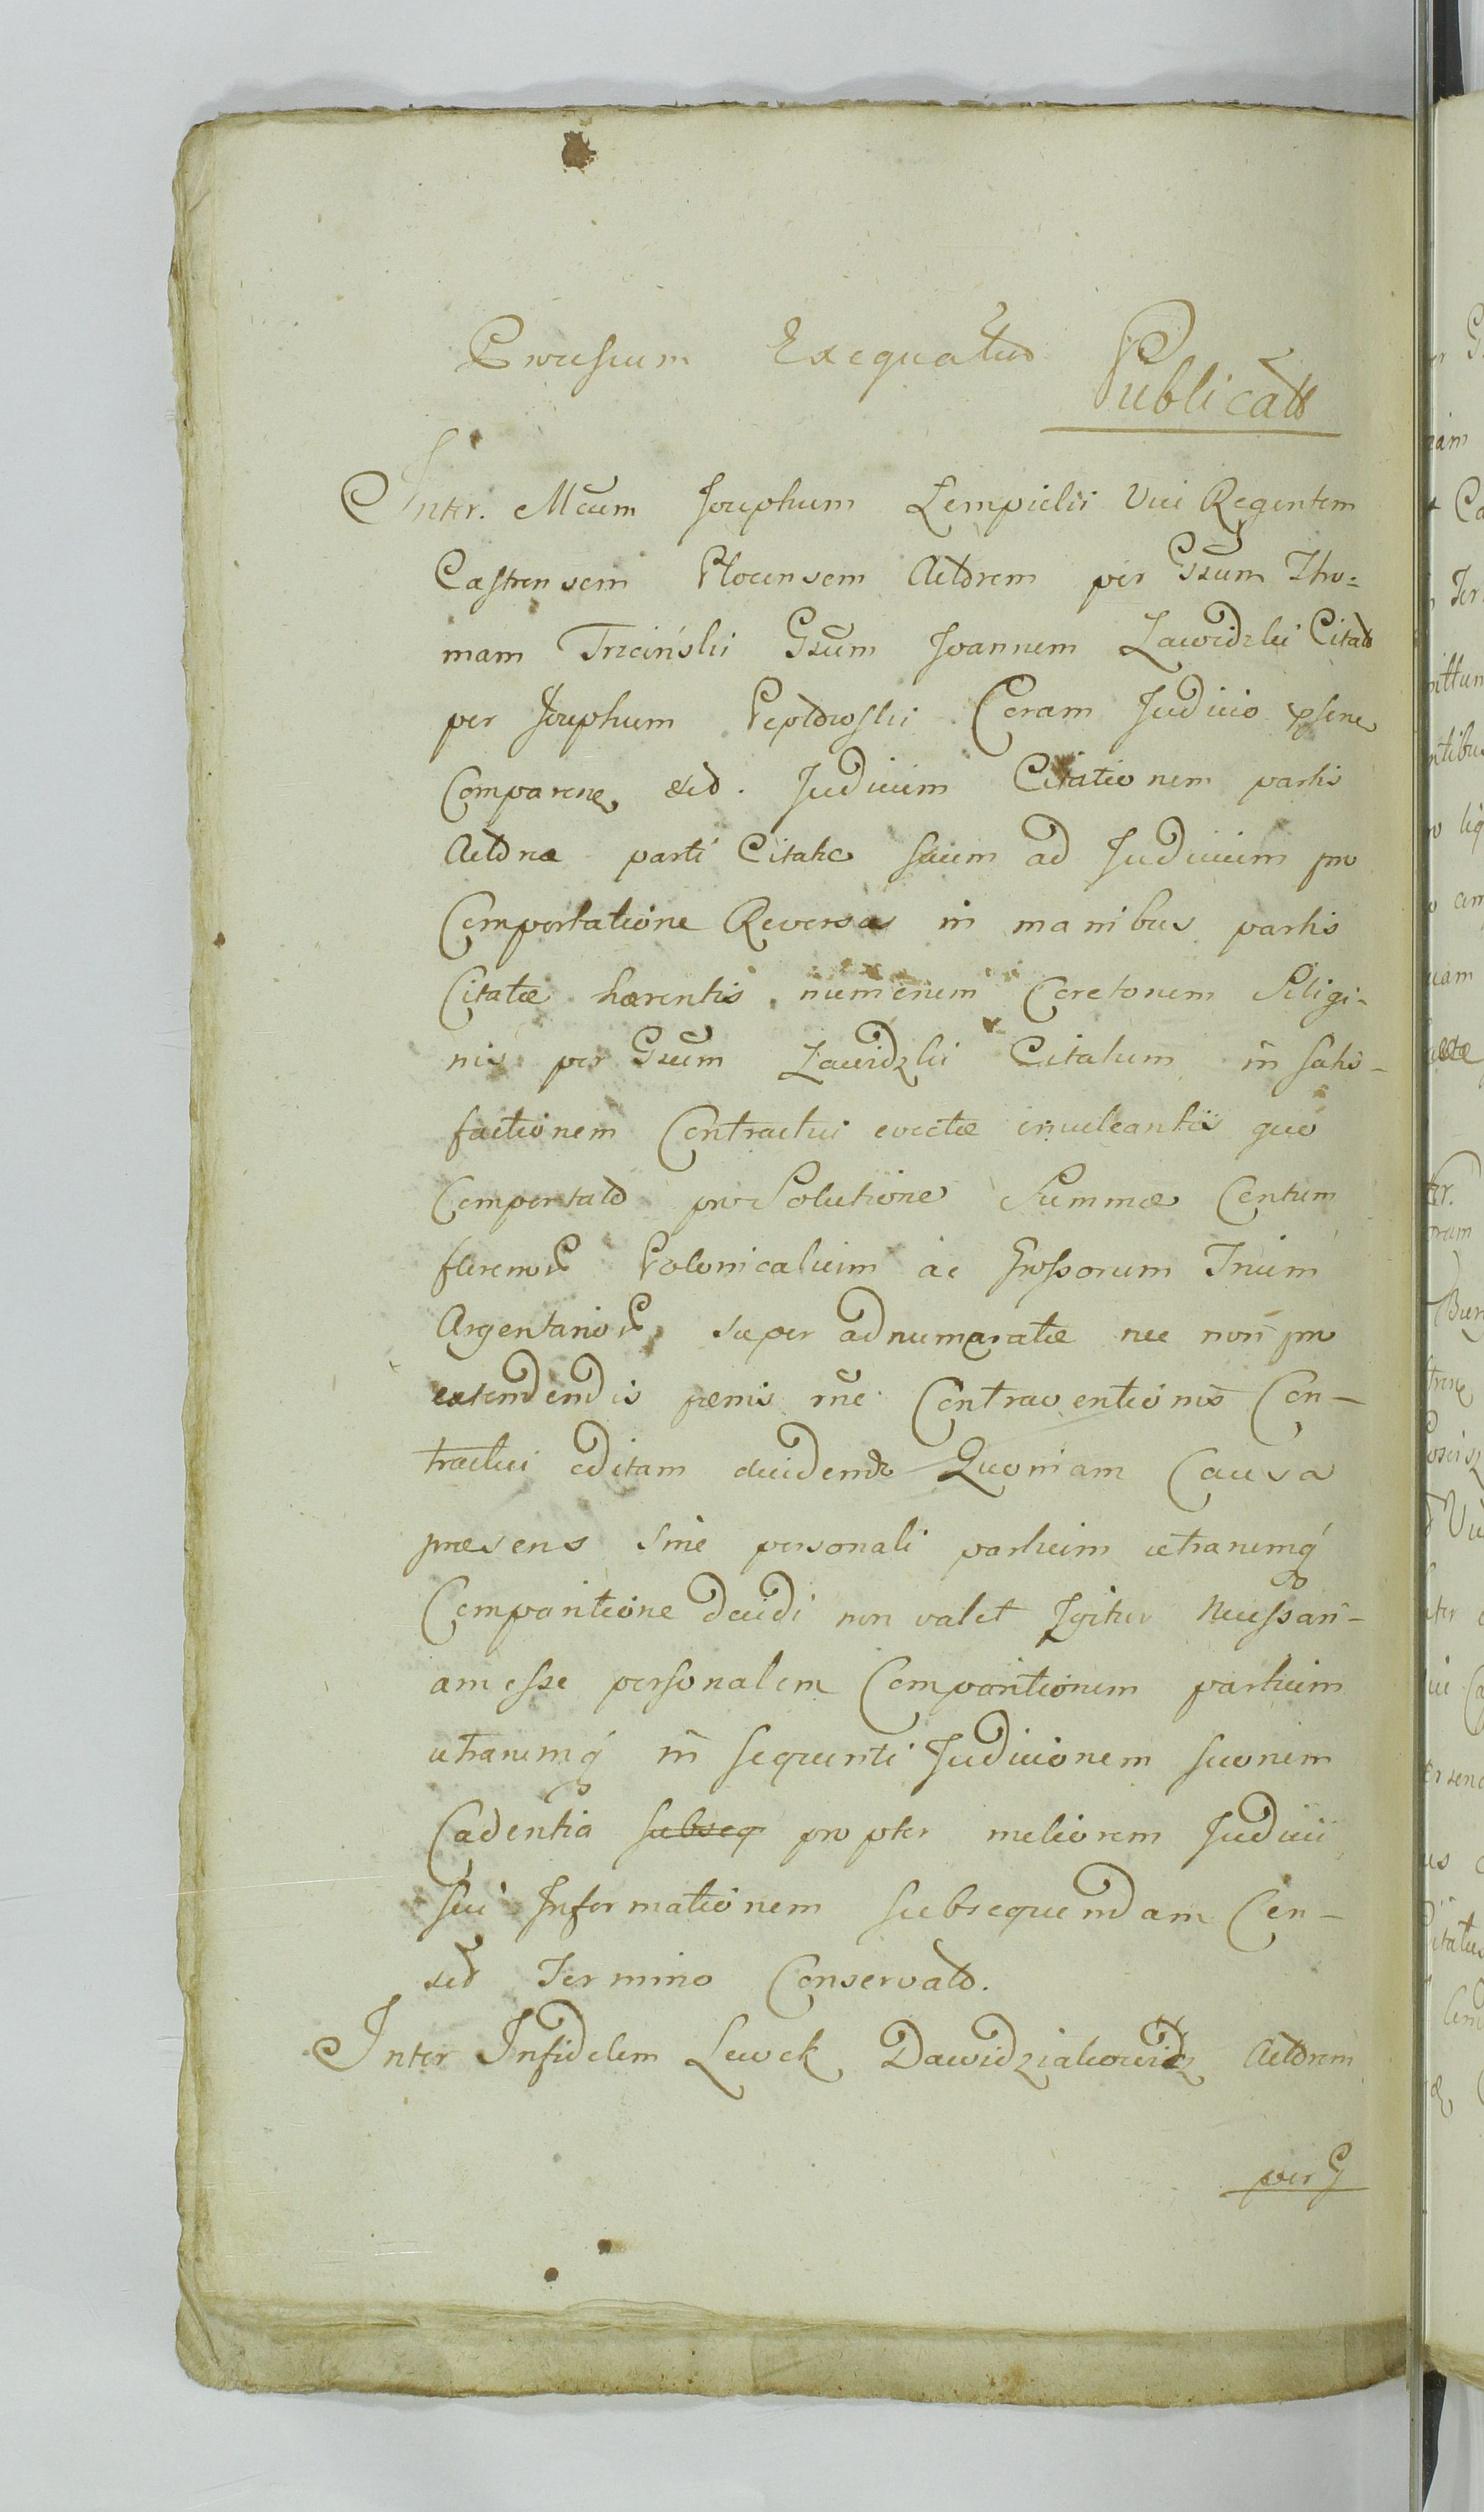 Exequatur
Publicat
Inter. Mcum Josephum Lempicki Vice Regentem
Castrensem Plocensem Actorem per Gsum Tho=
mam Trzcinski Gsum Joannem Zawidzki Citat
per Josephum Coram Judicio psene
Comparene, sed. Judicium Citationem partis
Actorea parti Citatae suum ad Judicium pro
Comportatione Reversas in manibus partis
Citatae haerentis numerum Coretorum Siligi-
nis per Gsum Zawidzki Citatum in satis-
factionem Contractui evictae quo
Comportato pro Solutione Summae Centum
florenor Polonicalium ac Grossorum Trium
Argenteor super adnumeratae nec non pro
extendendis paenis rne Contraventionis Con-
tractui editam decidendo Quoniam Causa
praesens sine personali partium utrarumq
Comparitione decidi non valet Igitur Necessari-
am esse personalem Comparitionem partium
utrarumq in sequenti Judiciorum suorum
Cadentia subseq propter meliorem Judicii
sui Informationem subsequendam Cen-
set Termino Conservato.
Inter Infidelem Lewek Dawidziakowicz Actorem
per G